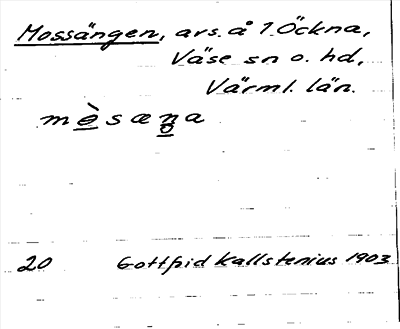 Mossängen, ars. å 1 Öckna,
Väse sn o. hd,
Värml. län.
mèsæŋa
20 Gottfrid Kallstenius 1903